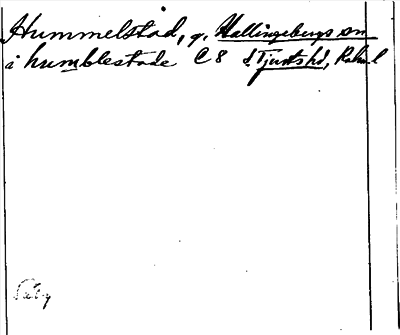 Hummelstad, g. Hallingebergs sn
i humblestade C8 S. Tjusts hd, Kalm l